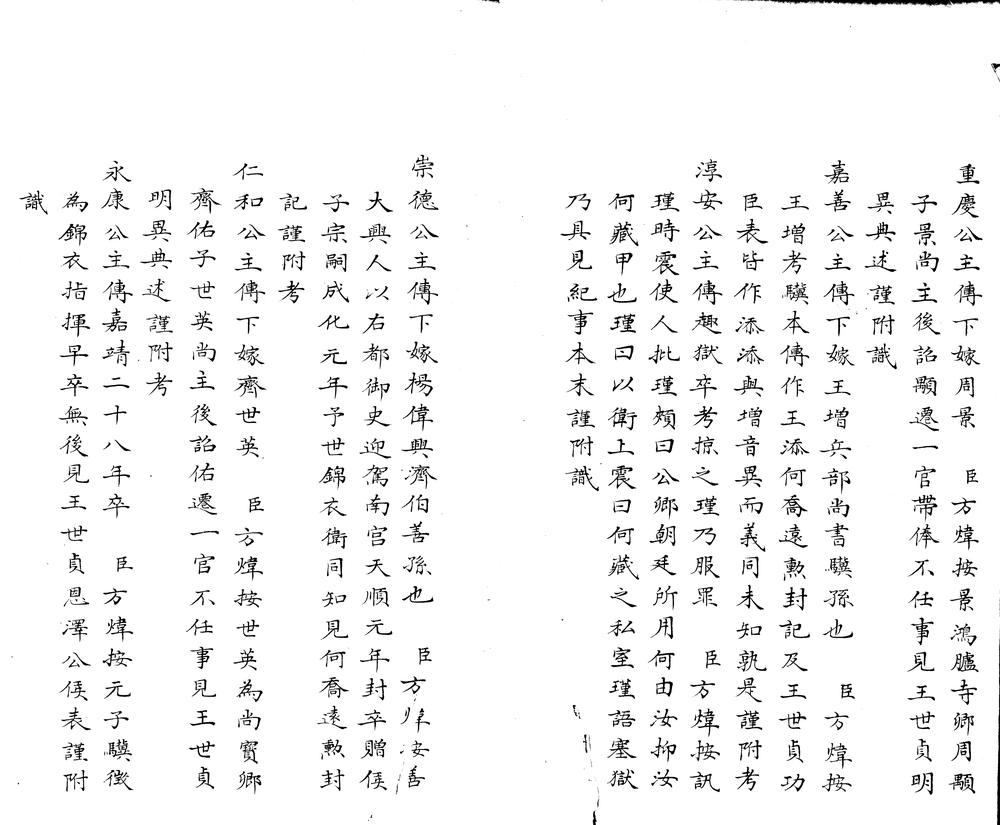 重慶公主傳下嫁周景　臣方煒按景鴻臚寺卿周顯
子景尚主後詔顯遷一官帶俸不任事見王世貞明
異典述謹附識
嘉善公主傳下嫁王增兵部尚書驥孫也　臣方煒按
王增考驥本傳作王添何喬遠勲封記及王世貞功
臣表皆作添添與增音異而義同未知孰是謹附考
淳安公主傳趣獄卒考掠之瑾乃服罪　臣方煒按訊
瑾時震使人批瑾頰曰公卿朝廷所用何由汝抑汝
何藏甲也瑾曰以衛上震曰何藏之私室瑾語塞獄
乃具見紀事本末謹附識
崇德公主傳下嫁楊偉興濟伯善孫也　臣方煒按善
大興人以右都御史迎駕南宮天順元年封卒贈侯
子宗嗣成化元年予世錦衣衛同知見何喬遠勲封
記謹附考
仁和公主傳下嫁齊世英　臣方煒按世英為尚寶卿
齊佑子世英尚主後詔佑遷一官不任事見王世貞
明異典述謹附考
永康公主傳嘉靖二十八年卒　臣方煒按元子驥徵
為錦衣指揮早卒無後見王世貞恩澤公侯表謹附
識